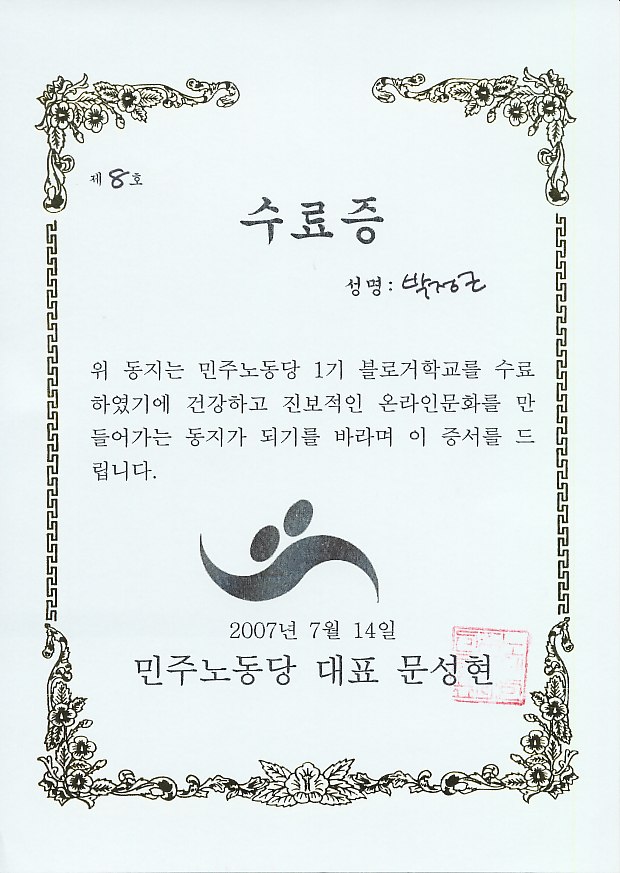 제 8 호
수료증
성명: 박정근
위 동지는 민주노동당 1기 블로거학교를 수료
하였기에 건강하고 진보적인 온라인문화를 만
들어가는 동지가 되기를 바라며 이 증서를 드
립니다.
2007년 7월 14일
민주노동당 대표 문성현